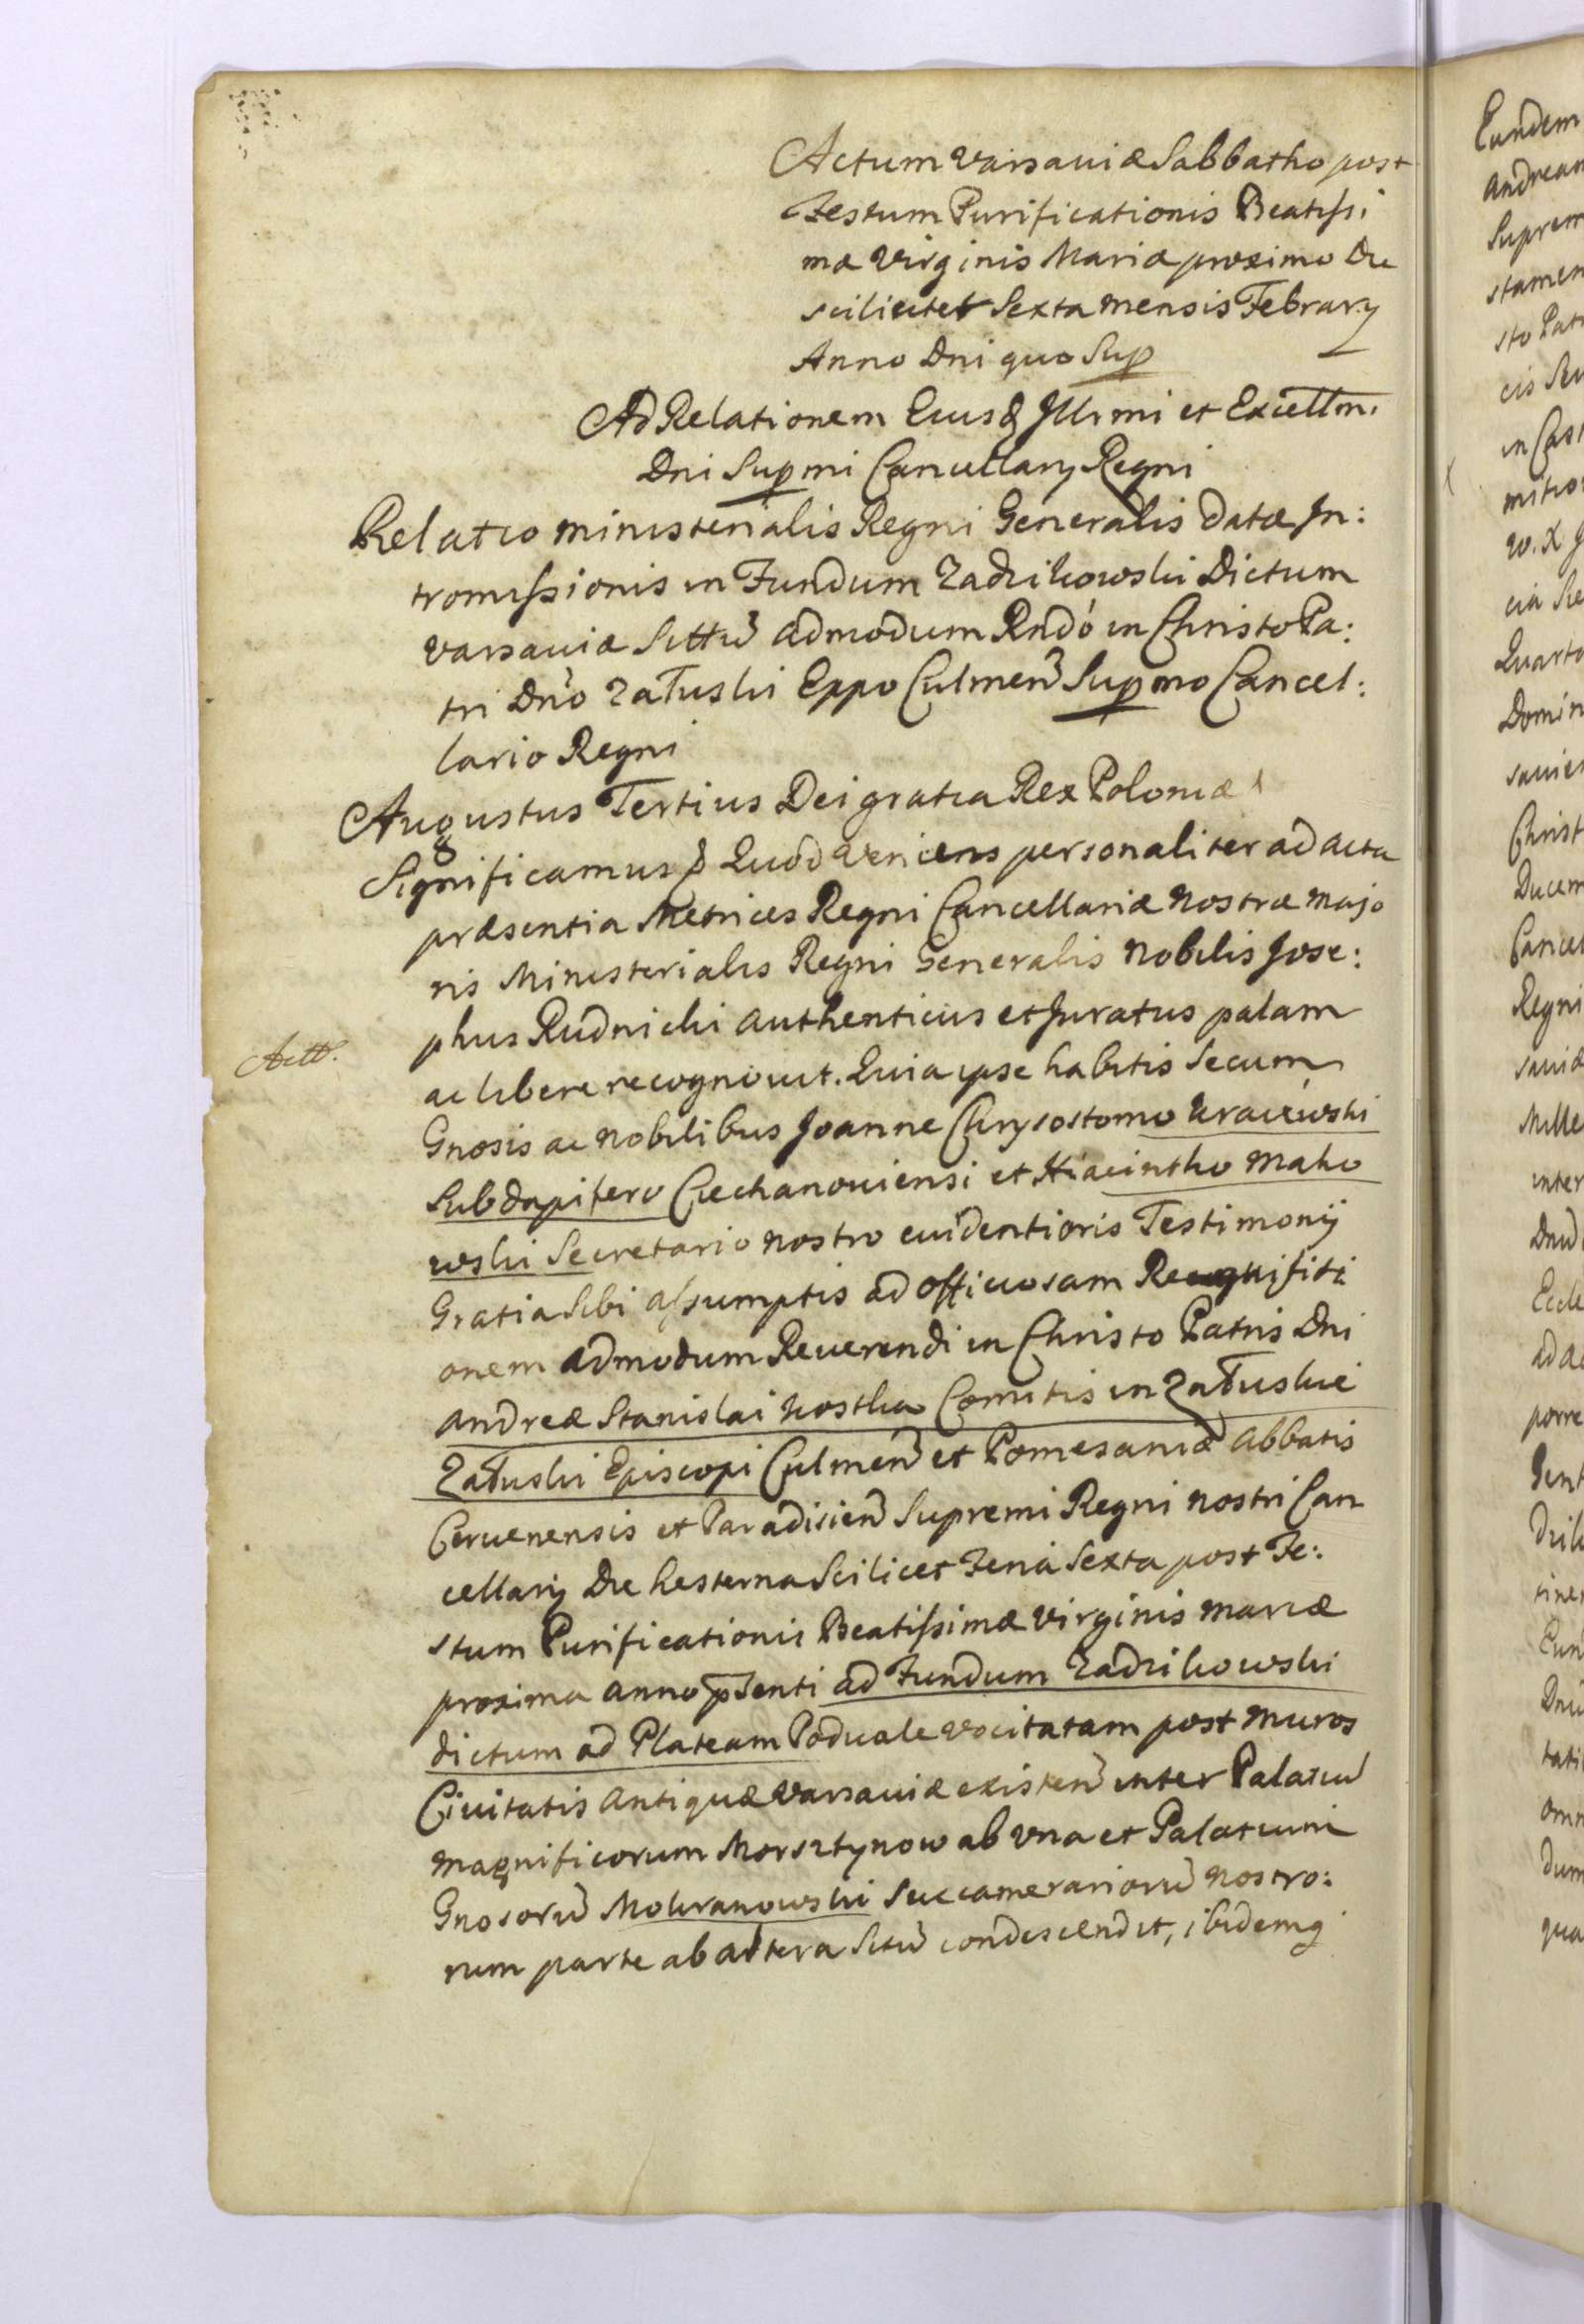 Actum Varsaviæ Sabbatho post
Festum Purificationis Beatissi
mæ Virginis Mariæ proximo Die
scilicitet Sexta mensis Febrary
Anno Dni quo Sup
Ad Relationem Eiusd Illrmi et Excellm.
Dni Supmi Cancellary Regni
Relatio ministerialis Regni Generalis Datæ In:
tromissionis in Fundum Zadzikowski Dictum
Varsaviæ Sittū admodum Rndo in Christo Pa:
tri Dno Załuski Eppo Culmen Supmo Cancel:
lario Regni
Augustus Tertius Dei gratia Rex Poloniæ
Significamus Quod veniens personaliter ad acta
præsentia Metrices Regni Cancellariæ Nostræ Majo
ris Ministerialis Regni Generalis Nobilis Jose:
phus Rudnicki authenticus et Juratus palam
Actt.
ac libere recognovit. Quia ipse habitis Secum
Gnosis ac Nobilibus Joanne Chrysostomo Kraiewski
Subdapifero Ciechanoviensi et Hiacintho Mako
wski Secretario nostro evidentioris Testimonij
Gratia Sibi assumptis ad officiosam Requisiti
onem admodum Reverendi in Christo Patris Dni
Andreæ Stanislai Kostka Comitis in Załuskie
Załuski Episcopi Culmen et Pomesaniæ Abbatis
Cervenensis et Paradisien Supremi Regni Nostri Can
cellarij Die hesterna Scilicet Feria Sexta post Fe:
stum Purificationis Beatissimæ Virginis Mariæ
proxima anno psenti ad Fundum Zadzikowski
dictum ad Plateam Podwale vocitatam post Muros
Civitatis Antiquæ Varsaviæ existen inter Palatiū
Magnificorum Morsztynow ab una et Palatium
Gnosorū Mokranowski Succamerariorū Nostro:
rum parte ab altera Sitū condescendit, ibidemq